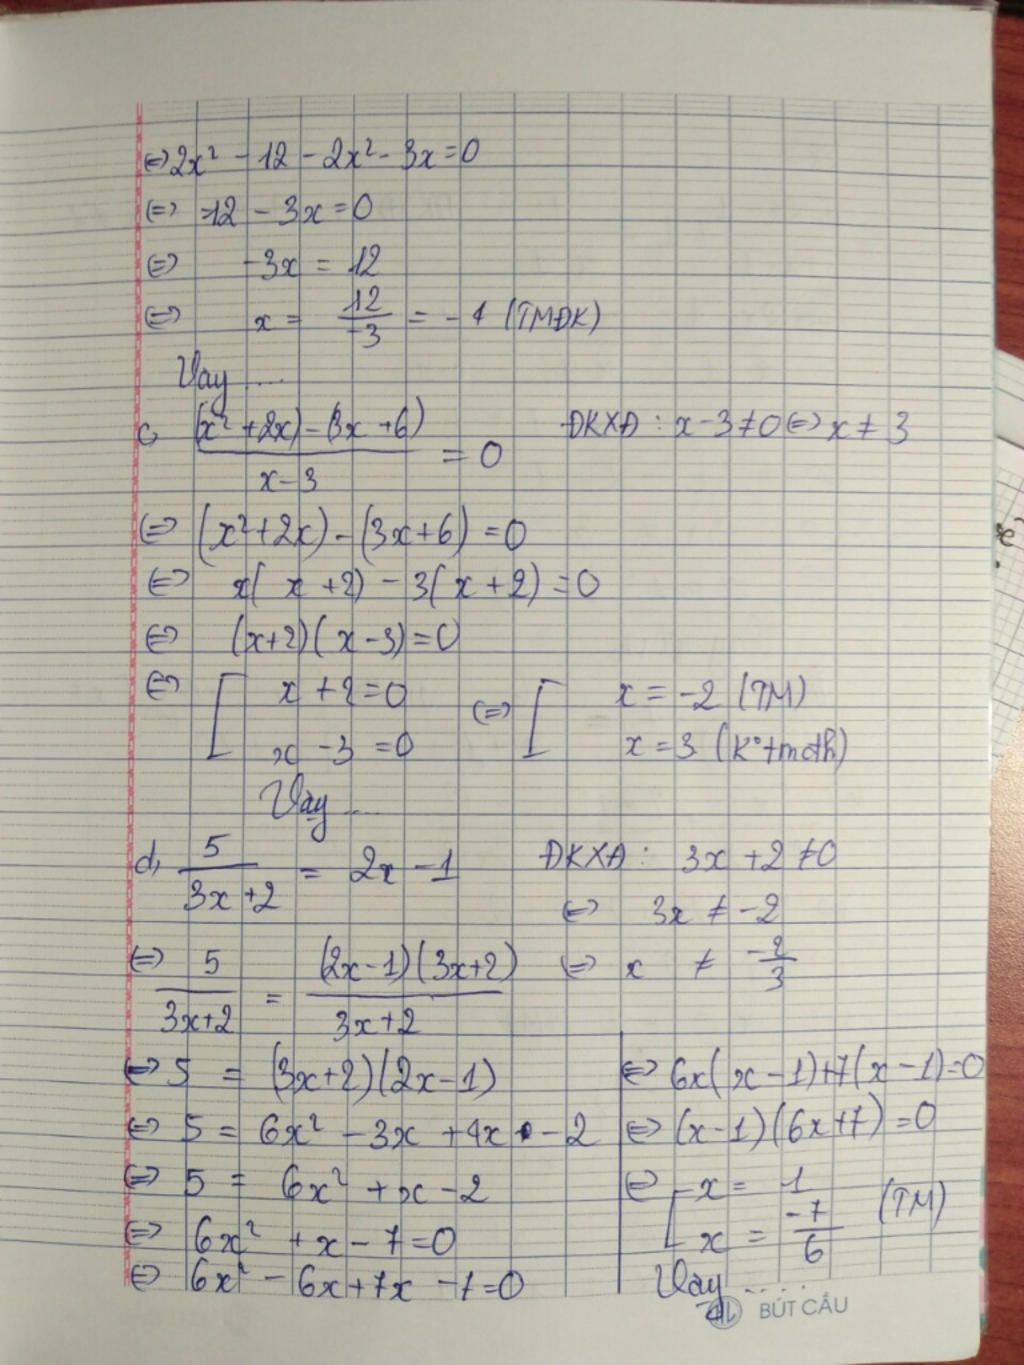 ⇔ 2x² - 12 - 2x² - 3x = 0
⇔ -12 - 3x = 0
⇔ -3x = 12
⇔ x = 12/-3 = -4 (TMĐK)
Vậy ....
c, (x² + 2x) - (3x + 6) / x - 3 = 0 ĐKXĐ : x - 3 ≠ 0 ⇔ x ≠ 3
⇔ (x² + 2x) - (3x + 6) = 0
⇔ x( x + 2) - 3( x + 2) = 0
⇔ (x + 2)( x - 3) = 0
⇔ [ x + 2 = 0 ⇔ [ x = -2 (TM)
x - 3 = 0 x = 3 (k° tmđk)
Vậy ....
d, 5 / 3x + 2 = 2x - 1 ĐKXĐ : 3x + 2 ≠ 0
⇔ 3x ≠ -2
⇔ 5 / 3x + 2 = (2x - 1)(3x + 2) / 3x + 2 ⇔ x ≠ -2/3
⇔ 5 = (3x + 2)(2x - 1)
⇔ 5 = 6x² - 3x + 4x - 2
⇔ 5 = 6x² + x - 2
⇔ 6x² + x - 7 = 0
⇔ 6x² - 6x + 7x - 7 = 0
⇔ 6x( x - 1) + 7(x - 1) = 0
⇔ (x - 1)(6x + 7) = 0
⇔ [ x = 1
x = -7/6 (TM)
Vậy .....
BÚT CÂU